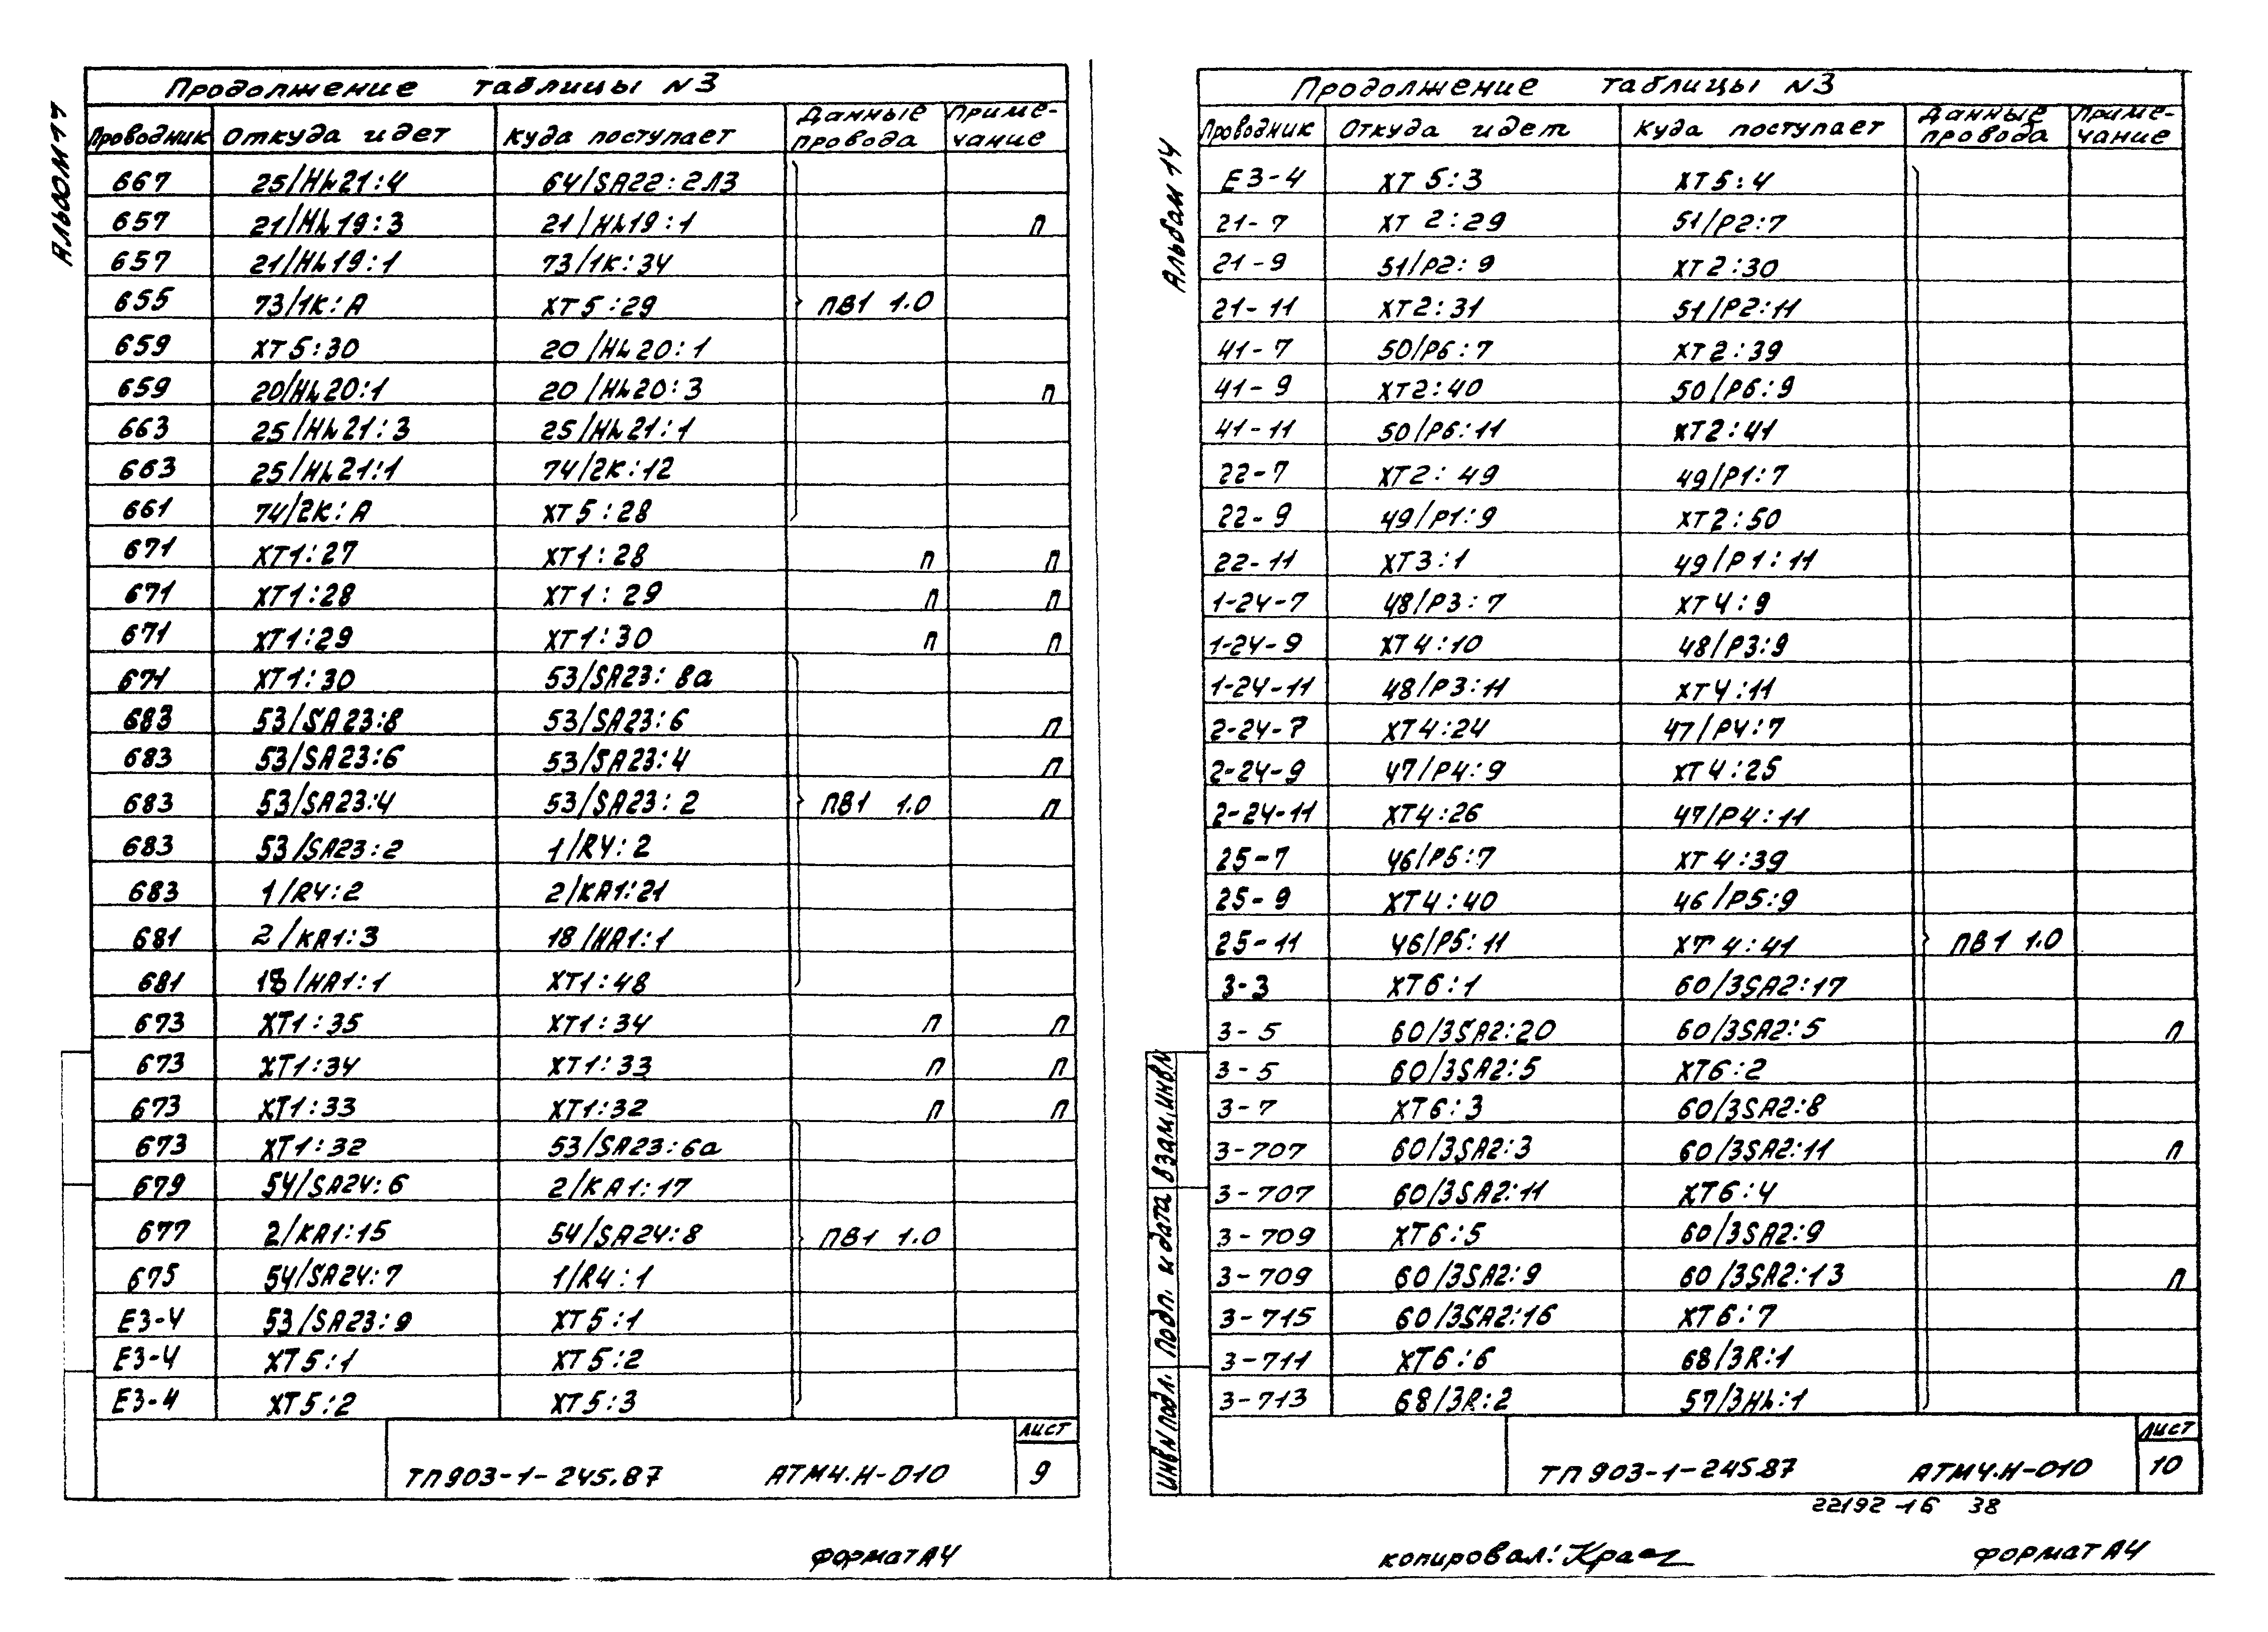 Альбом 14
Продолжение таблицы N3
Проводник Откуда идет Куда поступает Данные провода Примечание
667 25/HL21:4 64/SA22:2Л3
657 21/HL19:3 21/HL19:1 п
657 21/HL19:1 73/1К:34
655 73/1К:А ХТ5:29 ПВ1 1.0
659 ХТ5:30 20/HL20:1
659 20/HL20:1 20/HL20:3 п
663 25/HL21:3 25/HL21:1
663 25/HL21:1 74/2К:12
661 74/2К:А ХТ5:28
671 ХТ1:27 ХТ1:28 п п
671 ХТ1:28 ХТ1:29 п п
671 ХТ1:29 ХТ1:30 п п
671 ХТ1:30 53/SA23:8а
683 53/SA23:8 53/SA23:6 п
683 53/SA23:6 53/SA23:4 п
683 53/SA23:4 53/SA23:2 ПВ1 1.0 п
683 53/SA23:2 1/R4:2
683 1/R4:2 2/КА1:21
681 2/КА1:3 18/НА1:1
681 18/НА1:1 ХТ1:48
673 ХТ1:35 ХТ1:34 п п
673 ХТ1:34 ХТ1:33 п п
673 ХТ1:33 ХТ1:32 п п
673 ХТ1:32 53/SA23:6а
679 54/SA24:6 2/КА1:17
677 2/КА1:15 54/SA24:8 ПВ1 1.0
675 54/SA24:7 1/R4:1
Е3-4 53/SA23:9 ХТ5:1
Е3-4 ХТ5:1 ХТ5:2
Е3-4 ХТ5:2 ХТ5:3
ТП903-1-245.87 АТМ4.Н-010 Лист 9
Формат А4
Альбом 14
Продолжение таблицы N3
Проводник Откуда идет Куда поступает Данные провода Примечание
Е3-4 ХТ5:3 ХТ5:4
21-7 ХТ2:29 51/Р2:7
21-9 51/Р2:9 ХТ2:30
21-11 ХТ2:31 51/Р2:11
41-7 50/Р6:7 ХТ2:39
41-9 ХТ2:40 50/Р6:9
41-11 50/Р6:11 ХТ2:41
22-7 ХТ2:49 49/Р1:7
22-9 49/Р1:9 ХТ2:50
22-11 ХТ3:1 49/Р1:11
1-24-7 48/Р3:7 ХТ4:9
1-24-9 ХТ4:10 48/Р3:9
1-24-11 48/Р3:11 ХТ4:11
2-24-7 ХТ4:24 47/Р4:7
2-24-9 47/Р4:9 ХТ4:25
2-24-11 ХТ4:26 47/Р4:11
25-7 46/Р5:7 ХТ4:39
25-9 ХТ4:40 46/Р5:9
25-11 46/Р5:11 ХТ4:41 ПВ1 1.0
3-3 ХТ6:1 60/3SA2:17
3-5 60/3SA2:20 60/3SA2:5 п
3-5 60/3SA2:5 ХТ6:2
3-7 ХТ6:3 60/3SA2:8
3-707 60/3SA2:3 60/3SA2:11 п
3-707 60/3SA2:11 ХТ6:4
3-709 ХТ6:5 60/3SA2:9
3-709 60/3SA2:9 60/3SA2:13 п
3-715 60/3SA2:16 ХТ6:7
3-711 ХТ6:6 68/3R:1
3-713 68/3R:2 57/3HL:1
Инв.N подл. Подп. и дата Взам.инв.N
ТП903-1-245.87 АТМ4.Н-010 Лист 10
22192-16 38
копировал: Формат А4